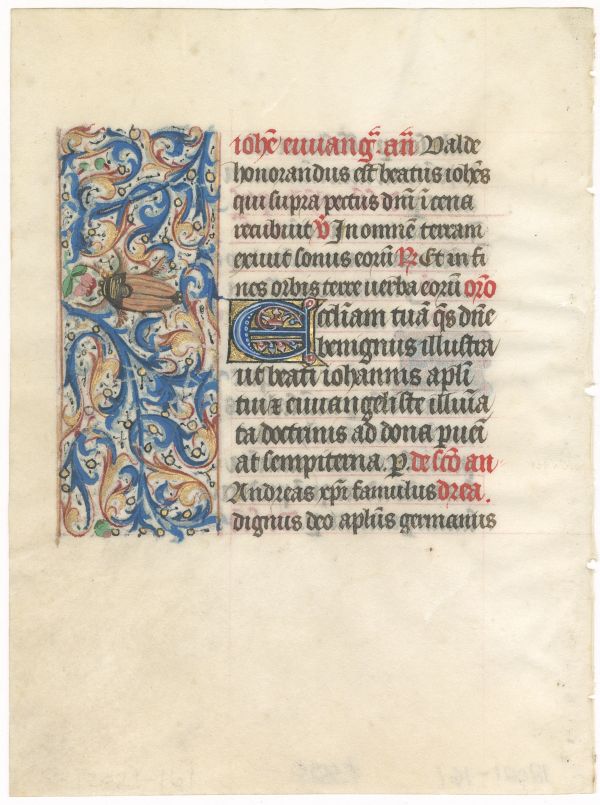 iohē euuang̃. añ Valde
honorandus est beatus iohēs
qui supra pectus dnī ī cena
recibuit v̄ In omnē terram
exiuit sonus eorū R̄. Et in fi
nes orbis terre uerba eorū orō
Eccliam tuā q̄s dn̄e
benignus illustra
ut beati iohannis apli
tui ⁊ euuangeliste illūīa
ta doctrinis ad dona pueī
at sempiterna. p. de sc̄o an
Andreas xp̄i famulus drea.
dignus deo aplūs germanus